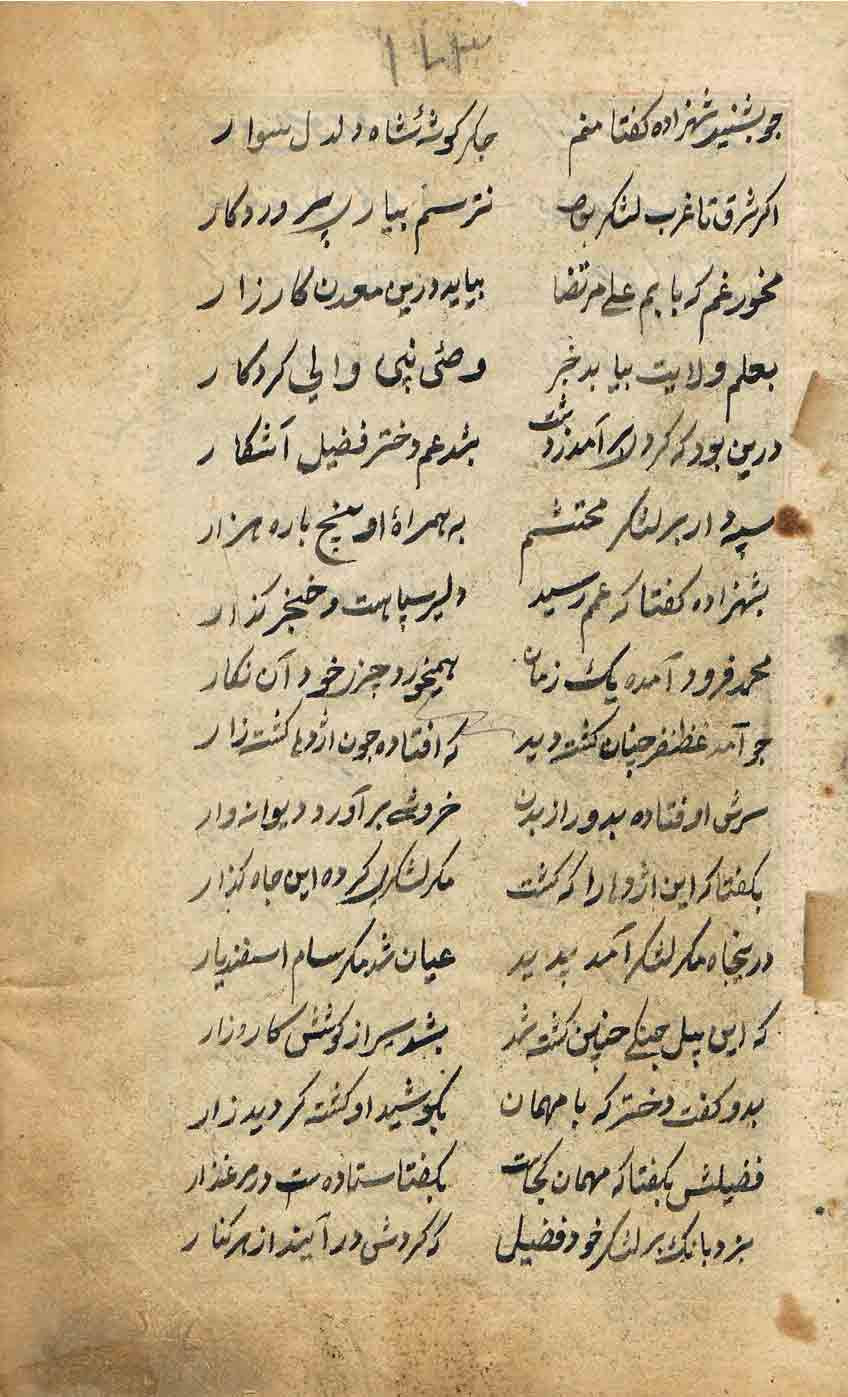 ۱۴۳
جو بشنید شهزاده کفتا منم جکر کوشهٔ شاه دلدل سوار
اکر شرق تا غرب لشکر بود نترسم بیاری پروردکار
مخور غم که بابم علی مرتضا بیاید درین معدن کارزار
بعلم ولایت بیابد خبر وصئی نبی والی کردکار
درین بود که کرد لا بر آمد زدشت بشد عم دختر فضیل آشکار
سپه دار بر لشکر محتشم به همراۀ او پنج باره هزار
بشهزاده کفتا که عم رسید دلیر سپاهست و خنجر کذار
محمد فرود آمده یک زمان همیخورد جزر خود آن نکار
جو آمد غظنفر جنان کشته دید که افتاده جون اژدها کشت زار
سرش اوفتاده بدور از بدن خروشی بر آورد دیوانه وار
بکفتا که این اژدها را که کشت مکر لشکری کرده این جاه کذار
درینجاه مکر لشکر آمد پدید عیان شد مکر سام اسفندیار
که این پیل جنکی جنین کشته شد بشد سیر از کوشش کاروزار
بدو کفت دختر که با مهمان بکوشید او کشته کردید زار
فضیلش بکفتا که مهمان کجاست بکفتا ستاده ست در مرغذار
بزد بانک بر لشکر خود فضیل که کردش در آیند از هر کنار